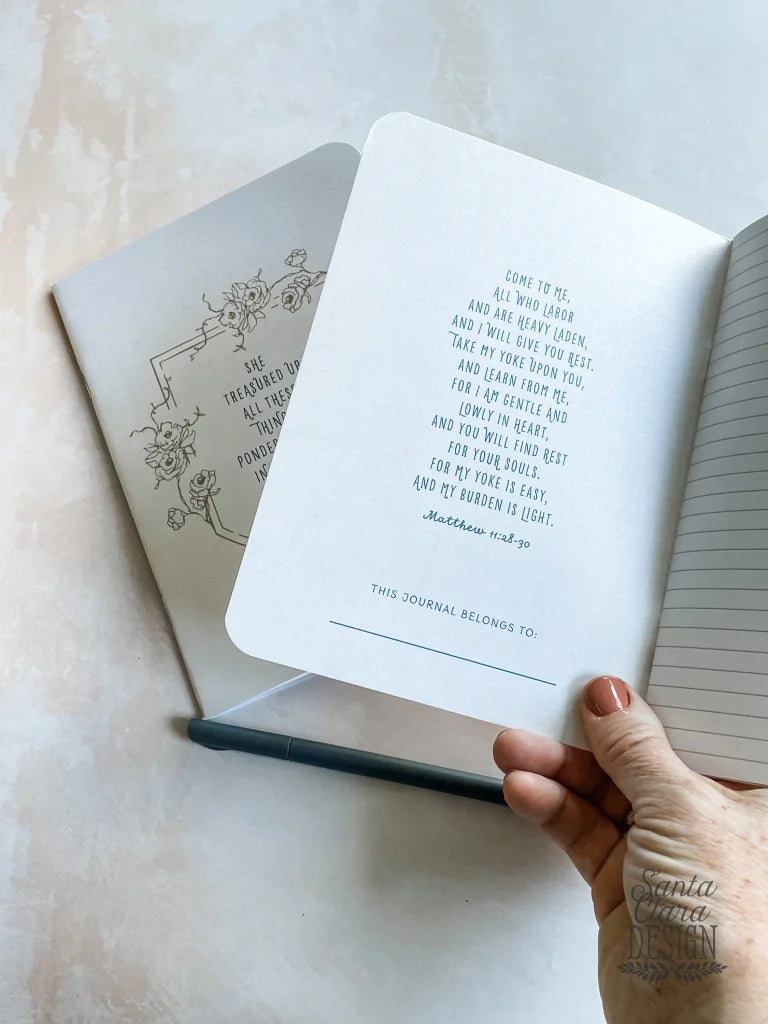 SHE
TREASURED UP
ALL THESE
THIN
PONDE
IN
COME TO ME,
ALL WHO LABOR
AND ARE HEAVY LADEN,
AND I WILL GIVE YOU REST.
TAKE MY YOKE UPON YOU,
AND LEARN FROM ME,
FOR I AM GENTLE AND
LOWLY IN HEART,
AND YOU WILL FIND REST
FOR YOUR SOULS.
FOR MY YOKE IS EASY,
AND MY BURDEN IS LIGHT.
Matthew 11:28-30
THIS JOURNAL BELONGS TO:
Santa
Clara
DESIGN